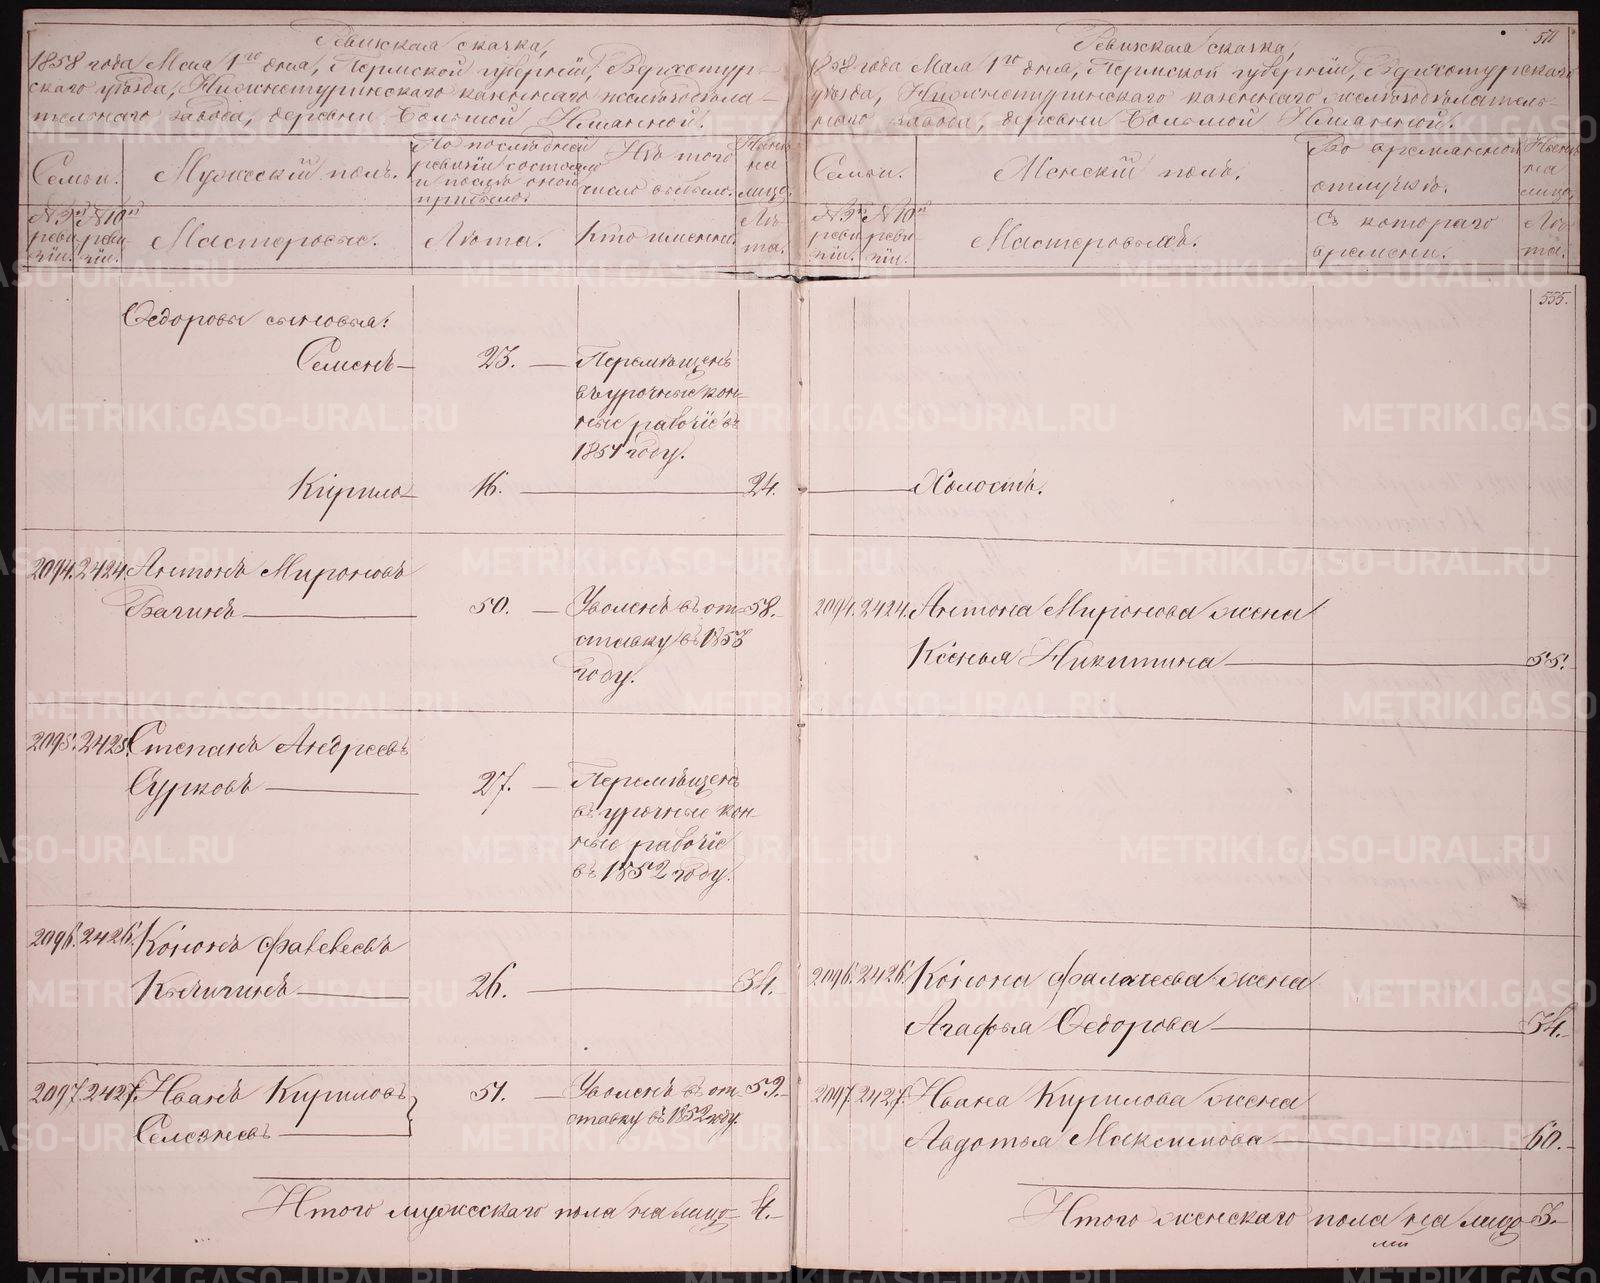 Ревижская сказка,
1858 года Маiя 1го дня, Пермской губернiи, Верхотур-
скаго уѣзда, Нижнетуринскаго казеннаго желѣзодѣла-
тельнаго завода, деревни Большой Именной.
Семьи.
Мужескiй полъ.
По послѣдней
ревизiи состояло
и послѣ оной
прибыло.
Изъ того
число выбыло.
Нынѣ
на
лицо.
№ 9й
реви-
зiи.
№ 10й
реви-
зiи.
Мастеровые.
Лѣта.
Кто именно.
Лѣ-
та.
Ѳедоровы сыновья:
Семенъ — 23. — Перемѣщенъ
въ урочные кон-
ные рабочiе въ
1851 году.
Кирило — 16. — 24.
2094. 2424. Антонъ Мироновъ
Бачинъ — 50. — Уволенъ въ от- 58.
ставку въ 1853
году.
2095. 2425. Степанъ Андреевъ
Сурковъ — 27. — Перемѣщенъ
въ урочные кон-
ные рабочiе
въ 1852 году.
2096. 2426. Кононъ Фадеевъ
Кычигинъ — 26. — 34.
2097. 2427. Иванъ Кириловъ — 51. — Уволенъ въ от- 59.
Селезневъ — ставку въ 1852 году.
Итого мужескаго пола на лицо 4.
511
Ревижская сказка,
1858 года Маiя 1го дня, Пермской губернiи, Верхотурскаго
уѣзда, Нижнетуринскаго казеннаго желѣзодѣлатель-
наго завода, деревни Большой Именной.
Семьи.
Женскiй полъ.
Во временной
отлучкѣ.
Нынѣ
на
лицо.
№ 9й
реви-
зiи.
№ 10й
реви-
зiи.
Мастеровыхъ.
Съ котораго
времени.
Лѣ-
та.
555.
Холостъ.
2094. 2424. Антона Миронова жена
Ксенья Никитина — 55.
2096. 2426. Конона Фалалеева жена
Агафья Ѳедорова — 34.
2097. 2427. Ивана Кирилова жена
Авдотья Максимова — 60.
Итого женскаго пола на лицо 3.
METRIKI.GASO-URAL.RU